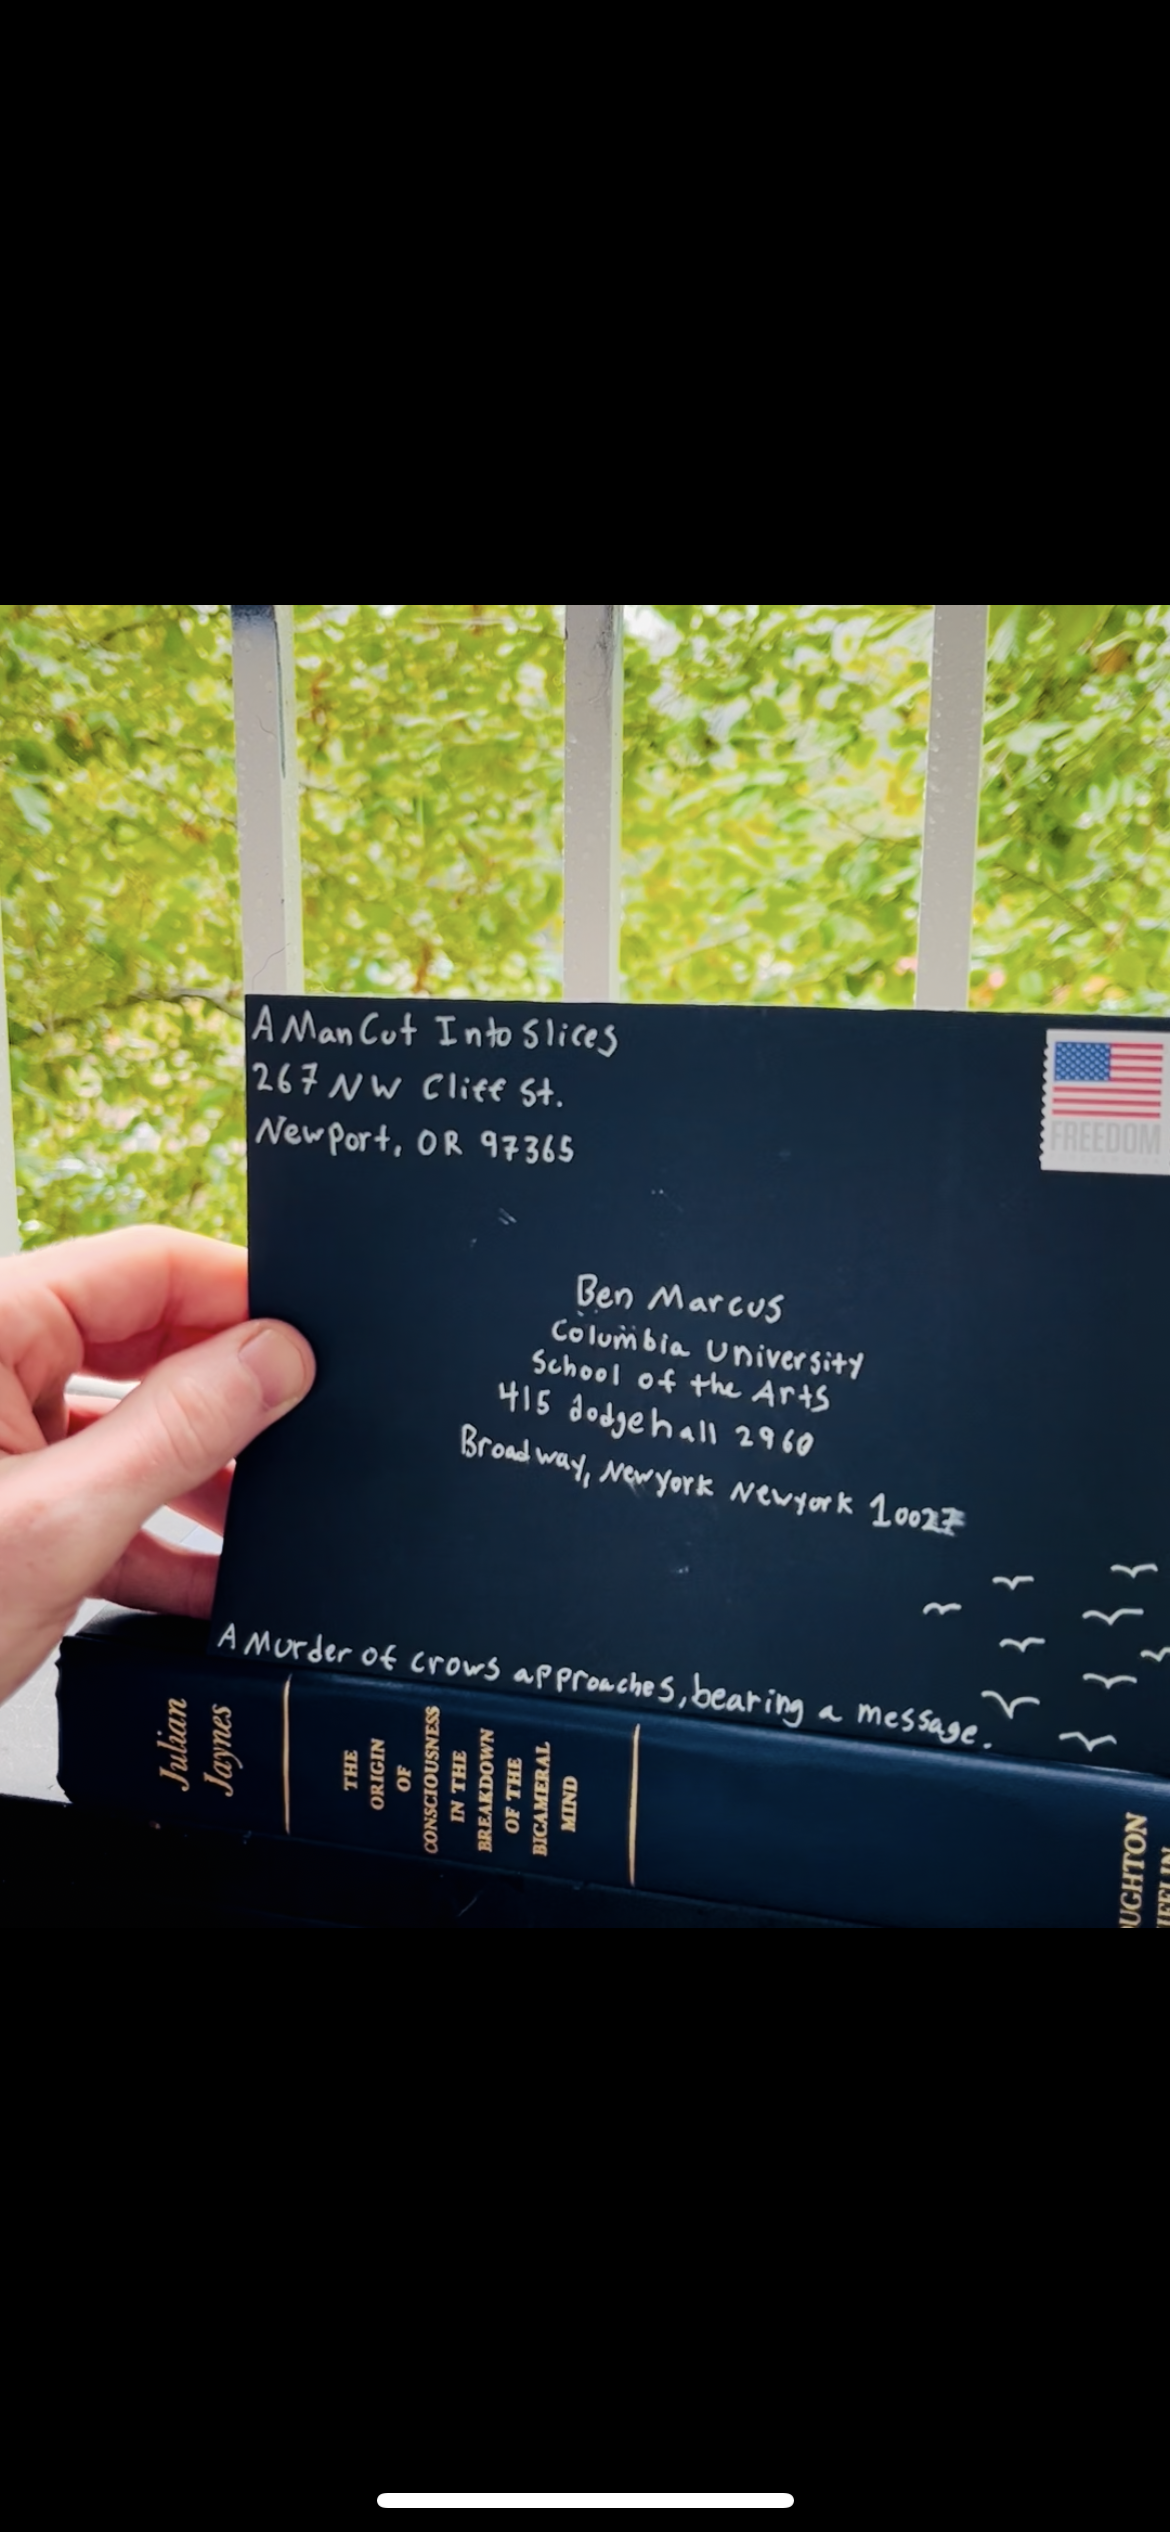 A Man Cut Into Slices
267 NW Cliff St.
Newport, OR 97365
FREEDOM
Ben Marcus
Columbia University
School of the Arts
415 dodge hall 2960
Broadway, New york New york 10027
A Murder of crows approaches, bearing a message.
Julian
Jaynes
THE
ORIGIN
OF
CONSCIOUSNESS
IN THE
BREAKDOWN
OF THE
BICAMERAL
MIND